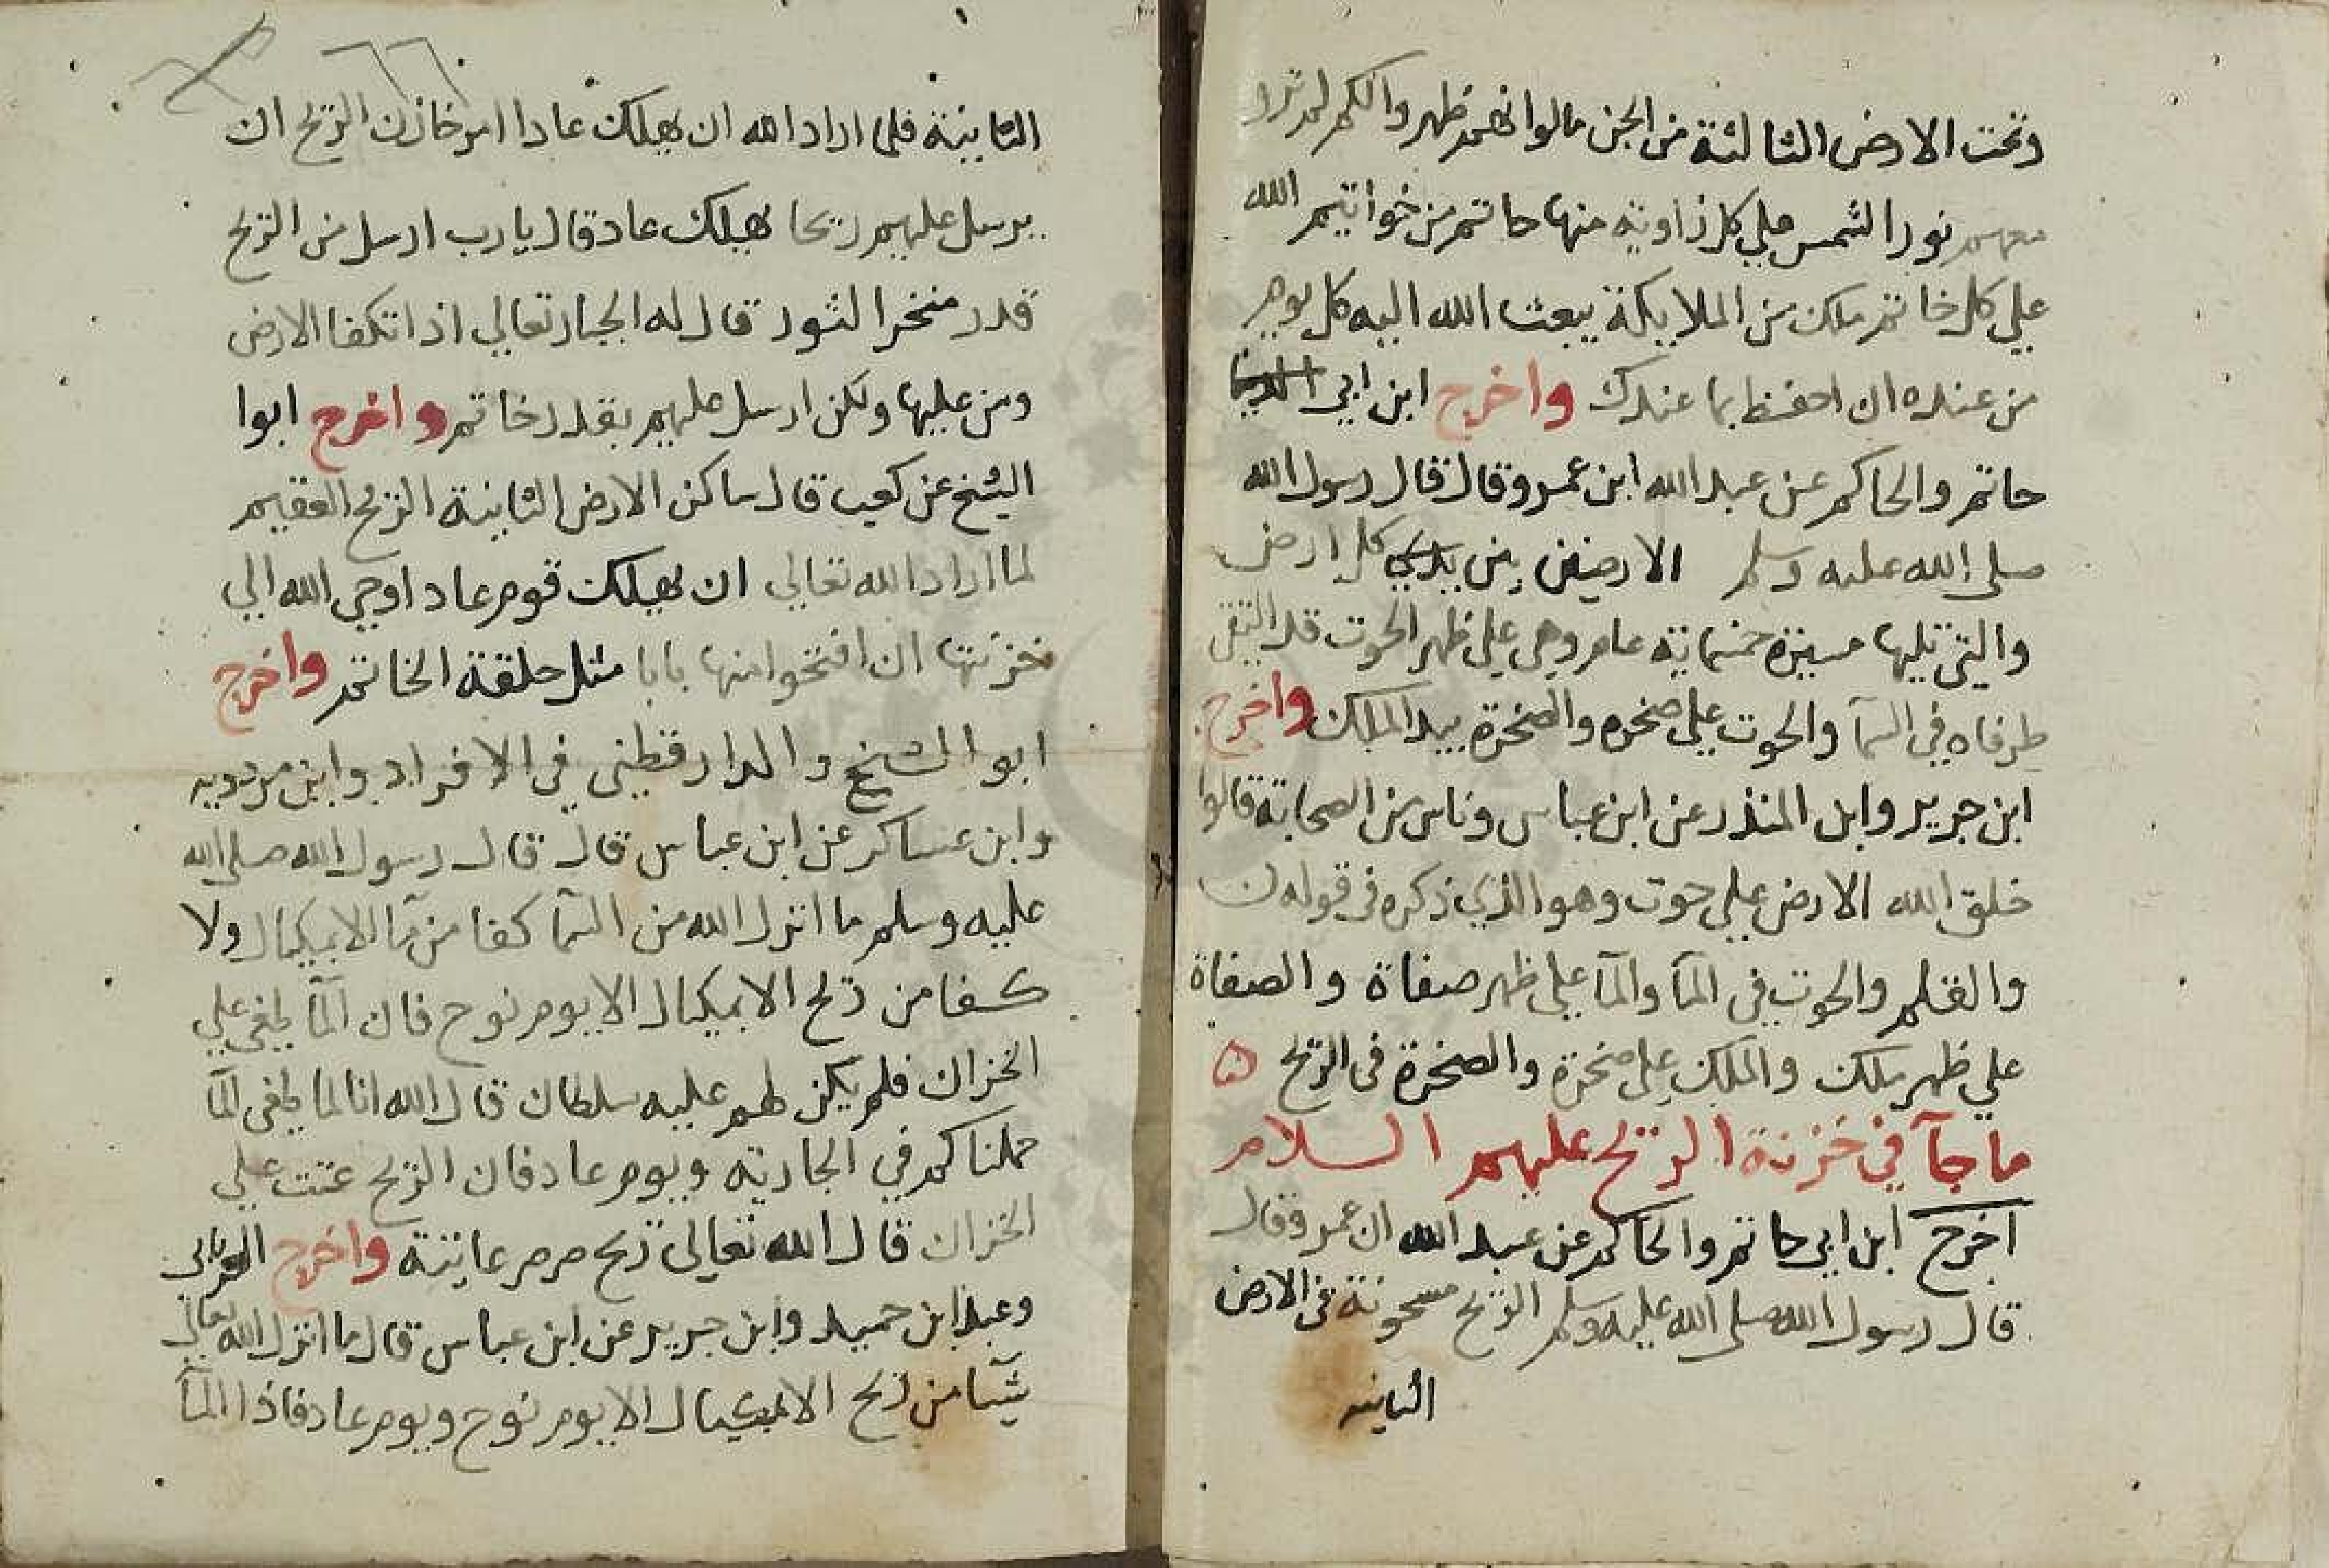 وتحت الارض الثالثة من الجن مالوا نهم ظهر والكم لم تروا
معهم نور الشمس على كل زاوية منها خاتم من خواتيم الله
على كل خاتم ملك من الملايكة يبعث الله اليه كل يوم
من عنده ان احفظ بما عندك واخرج ابن ابي
حاتم والحاكم عن عبد الله ابن عمرو قال قال رسول الله
صلى الله عليه وسلم الارضين بين كل ارض
والتي تليها مسيرة خمسماية عام وهي على ظهر الحوت قد التقى
طرفاه في السمآ والحوت على صخره والصخرة بيد الملك واخرج
ابن جرير وابن المنذر عن ابن عباس وناس من الصحابة قالوا
خلق الله الارض على حوت وهو الذي ذكره في قوله ن
والقلم والحوت في المآ والمآ على ظهر صفاة والصفاة
على ظهر ملك والملك على صخرة والصخرة في الريح ه
ما جآ في خزنة الريح عليهم السلام
اخرج ابن ابي حاتم والحاكم عن عبد الله ان عمرو قال
قال رسول الله صلى الله عليه وسلم الريح مسجونة في الارض
الثانية
الثانية فلما اراد الله ان يهلك عادا امر خازن الريح ان
يرسل عليهم ريحا يهلك عاد قال يا رب ارسل من الريح
قدر منخر الثور قال له الجبار تعالى اذا تكفا الارض
ومن عليها ولكن ارسل عليهم بقدر خاتم واخرج ابوا
الشيخ عن كعب قال ساكن الارض الثانية الريح العقيم
لما اراد الله تعالى ان يهلك قوم عاد اوحى الله الى
خزنتها ان افتحوا منها بابا مثل حلقة الخاتم واخرج
ابوا الشيخ والدارقطني في الافراد وابن مردويه
وابن عساكر عن ابن عباس قال قال رسول الله صلى الله
عليه وسلم ما انزل الله من السمآ كفا من مآ الا بمكيال ولا
كفا من ريح الا بمكيال الا يوم نوح فان المآ طغى على
الخزان فلم يكن لهم عليه سلطان قال الله انا لما طغى المآ
حملناكم في الجارية ويوم عاد فان الريح عتت على
الخزان قال الله تعالى ريح صرصر عاتية واخرج الفريابي
وعبد ابن حميد وابن جرير عن ابن عباس قال ما انزل الله تعالى
شيئا من ريح الا بمكيال الا يوم نوح ويوم عاد فاذا المآ